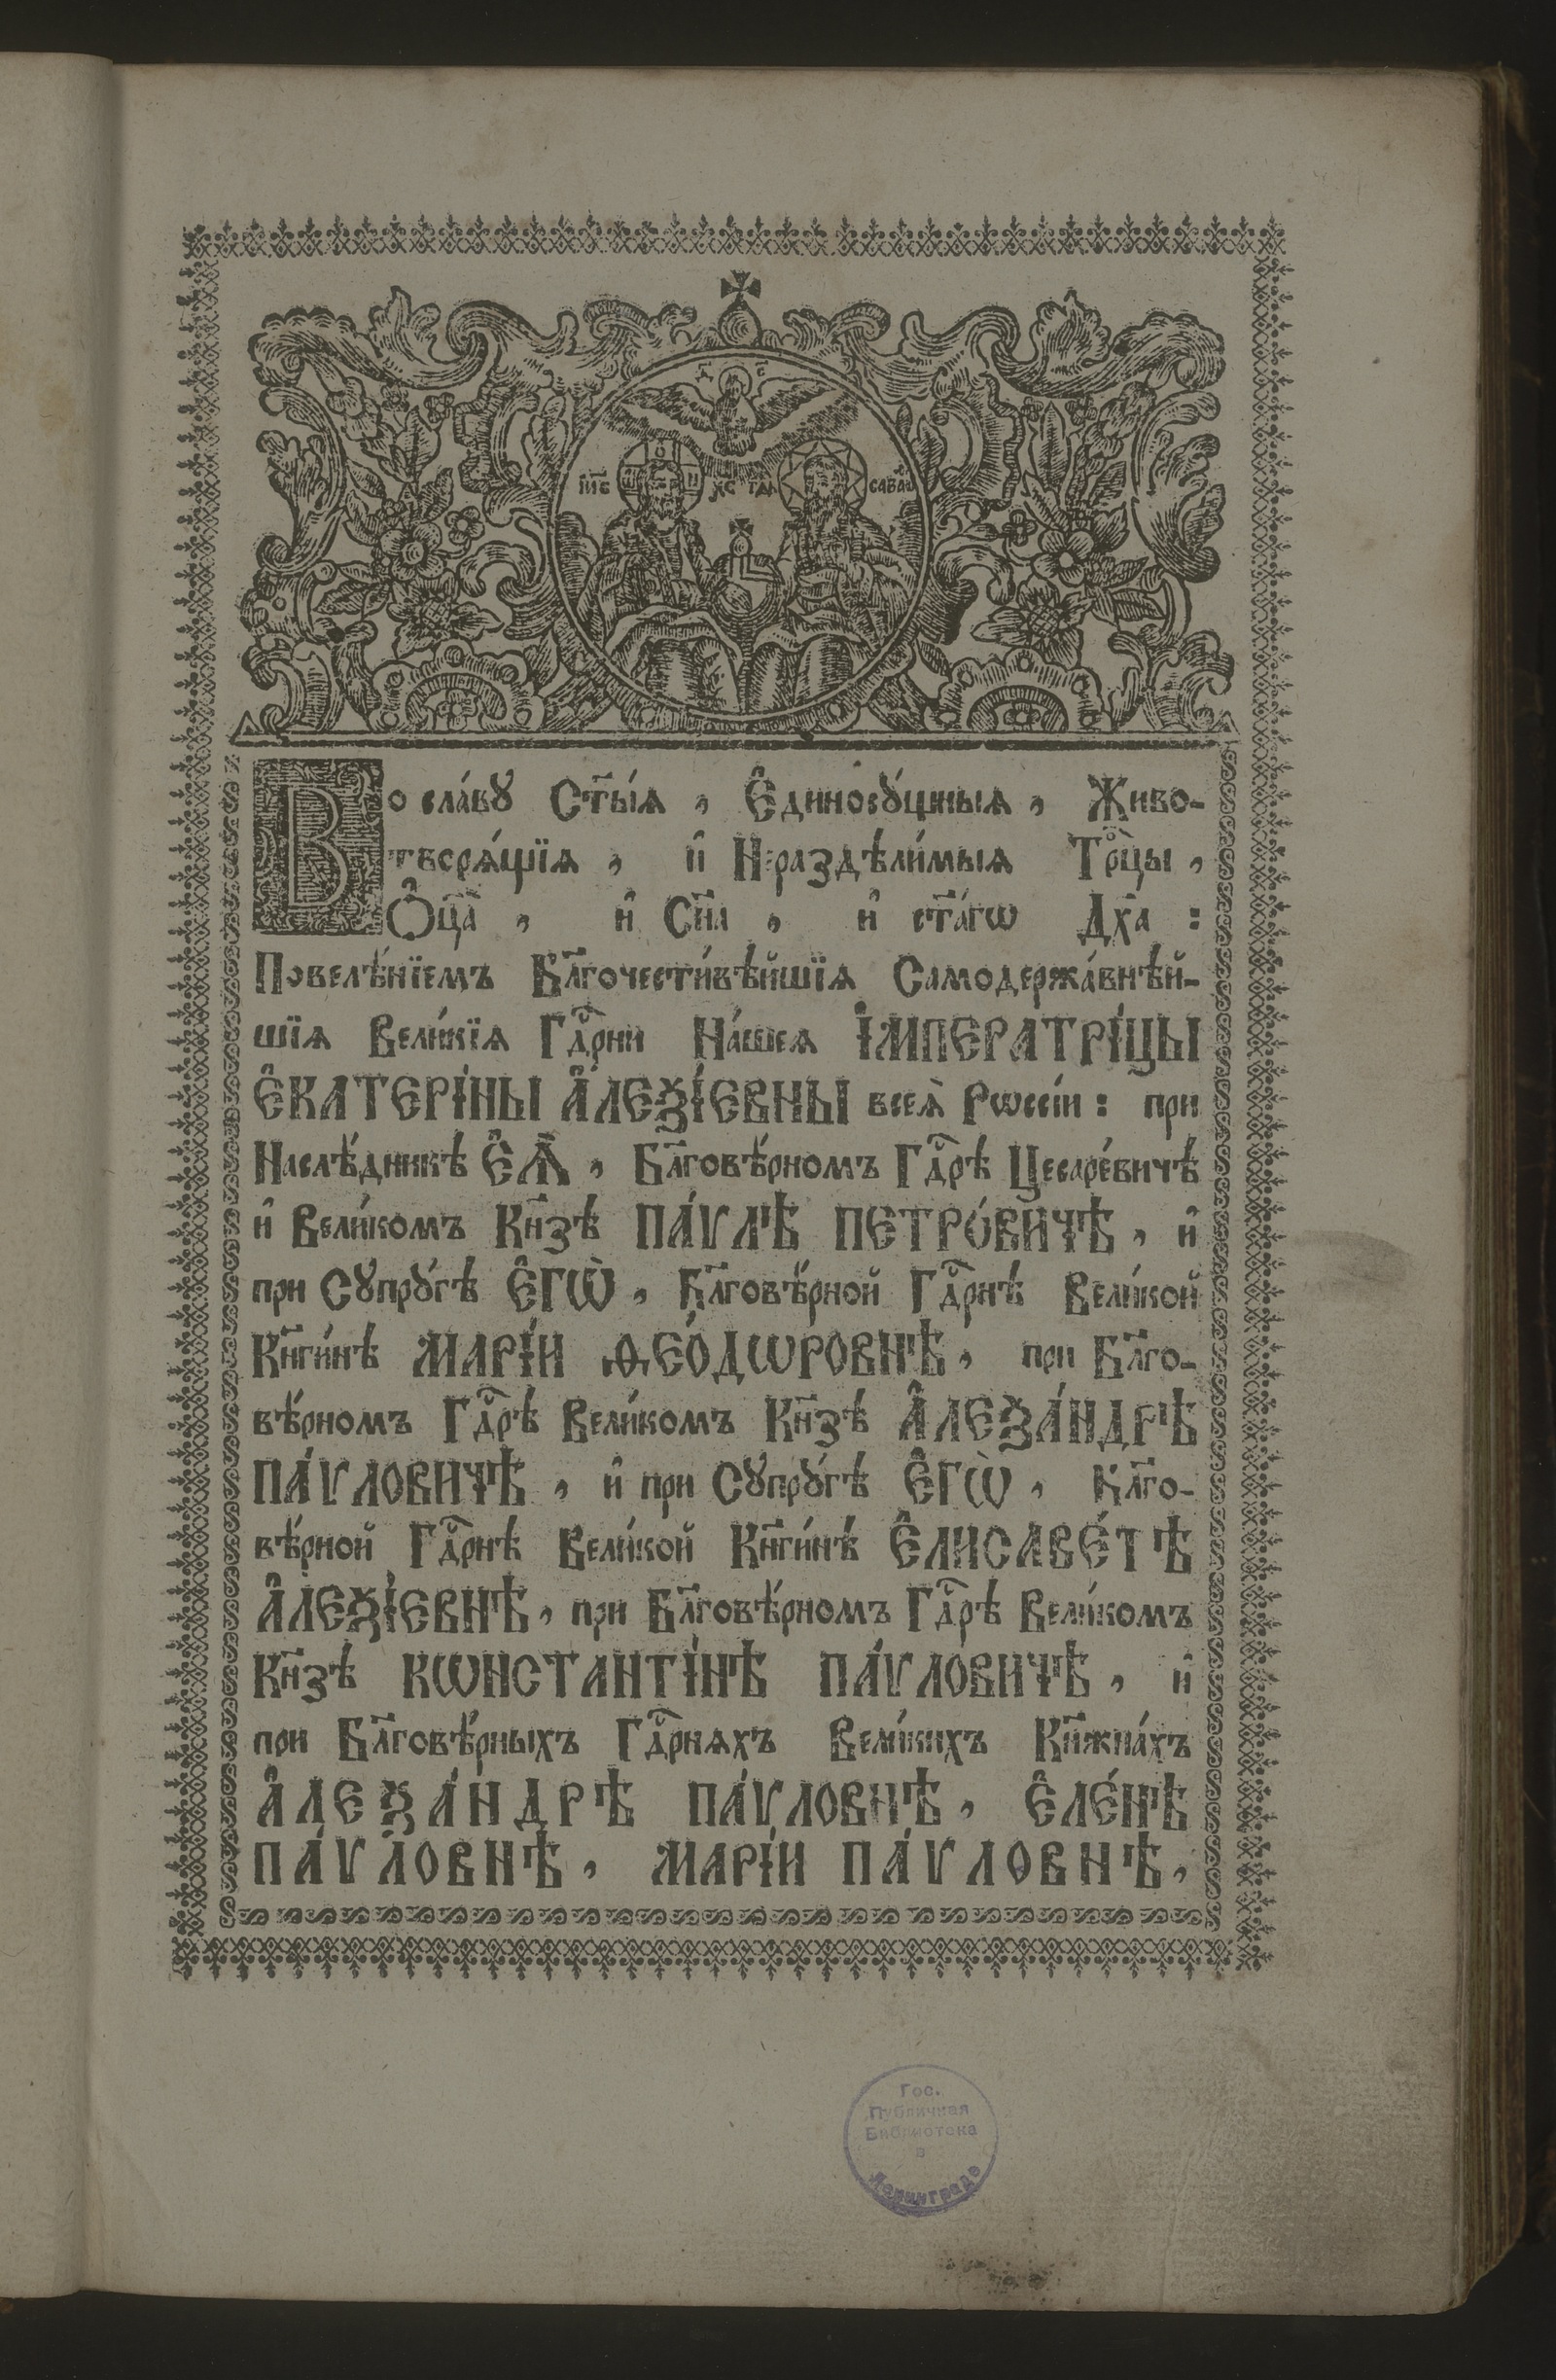 Д С
І҆И҃С ХС ГДЬ САВАѠ
Во сла́вꙋ Ст҃ы́ѧ, Є҆диносꙋ́щныѧ, Живо-
творѧ́щїѧ, и҆ Нераздѣли́мыѧ Трⷪ҇цы,
Ѻ҆ц҃а̀, и҆ Сн҃а, и҆ ст҃а́гѡ Дх҃а:
Повелѣ́нїемъ Бл҃гочести́вѣйшїѧ Самодержа́внѣй-
шїѧ Вели́кїѧ Гдⷭ҇рни На́шеѧ І҆МПЕРАТРІ́ЦЫ
Є҆КАТЕРІ́НЫ А҆ЛЕѮІ́ЕВНЫ всеѧ̀ Рѡссі́и: при
Наслѣ́дникѣ Є҆Ѧ̀, Бл҃говѣ́рномъ Гдⷭ҇рѣ Цесаре́вичѣ
и҆ Вели́комъ Кн҃зѣ ПА́ѴЛѢ ПЕТРО́ВИЧѢ, и҆
при Сꙋпрꙋ́гѣ Є҆ГѠ̀, Бл҃говѣ́рной Гдⷭ҇рнѣ Вели́кой
Кн҃ги́нѣ МАРІ́И ѲЕО́ДѠРОВНѢ, при Бл҃го-
вѣ́рномъ Гдⷭ҇рѣ́ Вели́комъ Кн҃зѣ А҆ЛЕѮА́НДРѢ
ПА́ѴЛОВИЧѢ, и҆ при Сꙋпрꙋ́гѣ Є҆ГѠ̀, Бл҃го-
вѣ́рной Гдⷭ҇рнѣ Вели́кой Кн҃ги́нѣ Є҆ЛИСАВЕ́ТѢ
А҆ЛЕѮІ́ЕВНѢ, при Бл҃говѣ́рномъ Гдⷭ҇рѣ Вели́комъ
Кн҃зѣ КѠНСТАНТІ́НѢ ПА́ѴЛОВИЧѢ, и҆
при Бл҃говѣ́рныхъ Гдⷭ҇рнѧхъ Вели́кихъ Кн҃жна́хъ
А҆ЛЕѮА́НДРѢ ПА́ѴЛОВНѢ, Є҆ЛЕ́НѢ
ПА́ѴЛОВНѢ, МАРІ́И ПА́ѴЛОВНѢ,
Гос.
Публичная
Библиотека
в
Ленинграде